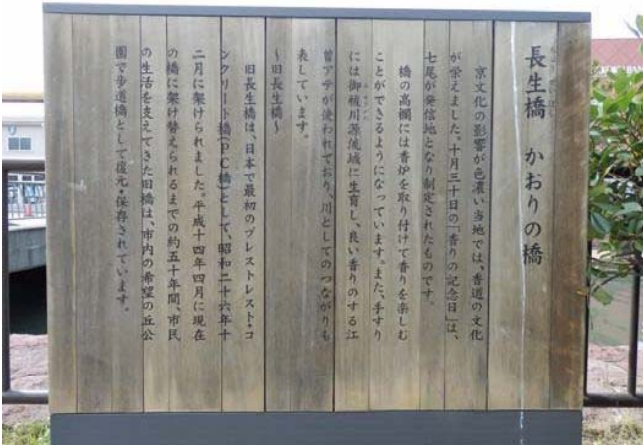 長生橋 かおりの橋
京文化の影響が色濃い当地では、香道の文化
が栄えました。十月三十日の「香りの記念日」は、
七尾が発信地となり制定されたものです。
橋の高欄には香炉を取り付けて香りを楽しむ
ことができるようになっています。また、手すり
には御祓川源流域に生育し、良い香りのする江
曽アテが使われており、川としてのつながりも
表しています。
〜旧長生橋〜
旧長生橋は、日本で最初のプレストレスト・コ
ンクリート橋(PC橋)として、昭和二十六年十
二月に架けられました。平成十四年四月に現在
の橋に架け替えられるまでの約五十年間、市民
の生活を支えてきた旧橋は、市内の希望の丘公
園で歩道橋として復元・保存されています。